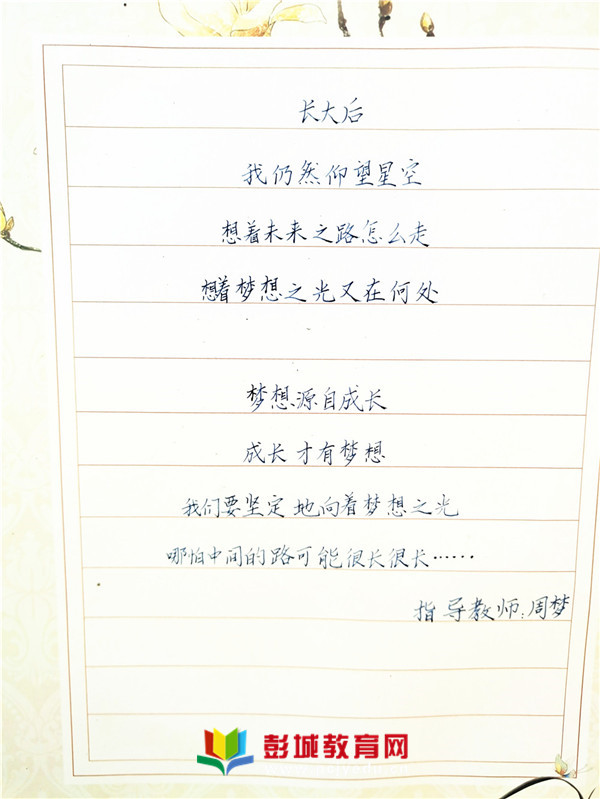 长大后
我仍然仰望星空
想着未来之路怎么走
想着梦想之光又在何处
梦想源自成长
成长才有梦想
我们要坚定地向着梦想之光
哪怕中间的路可能很长很长……
指导教师:周梦
彭城教育网